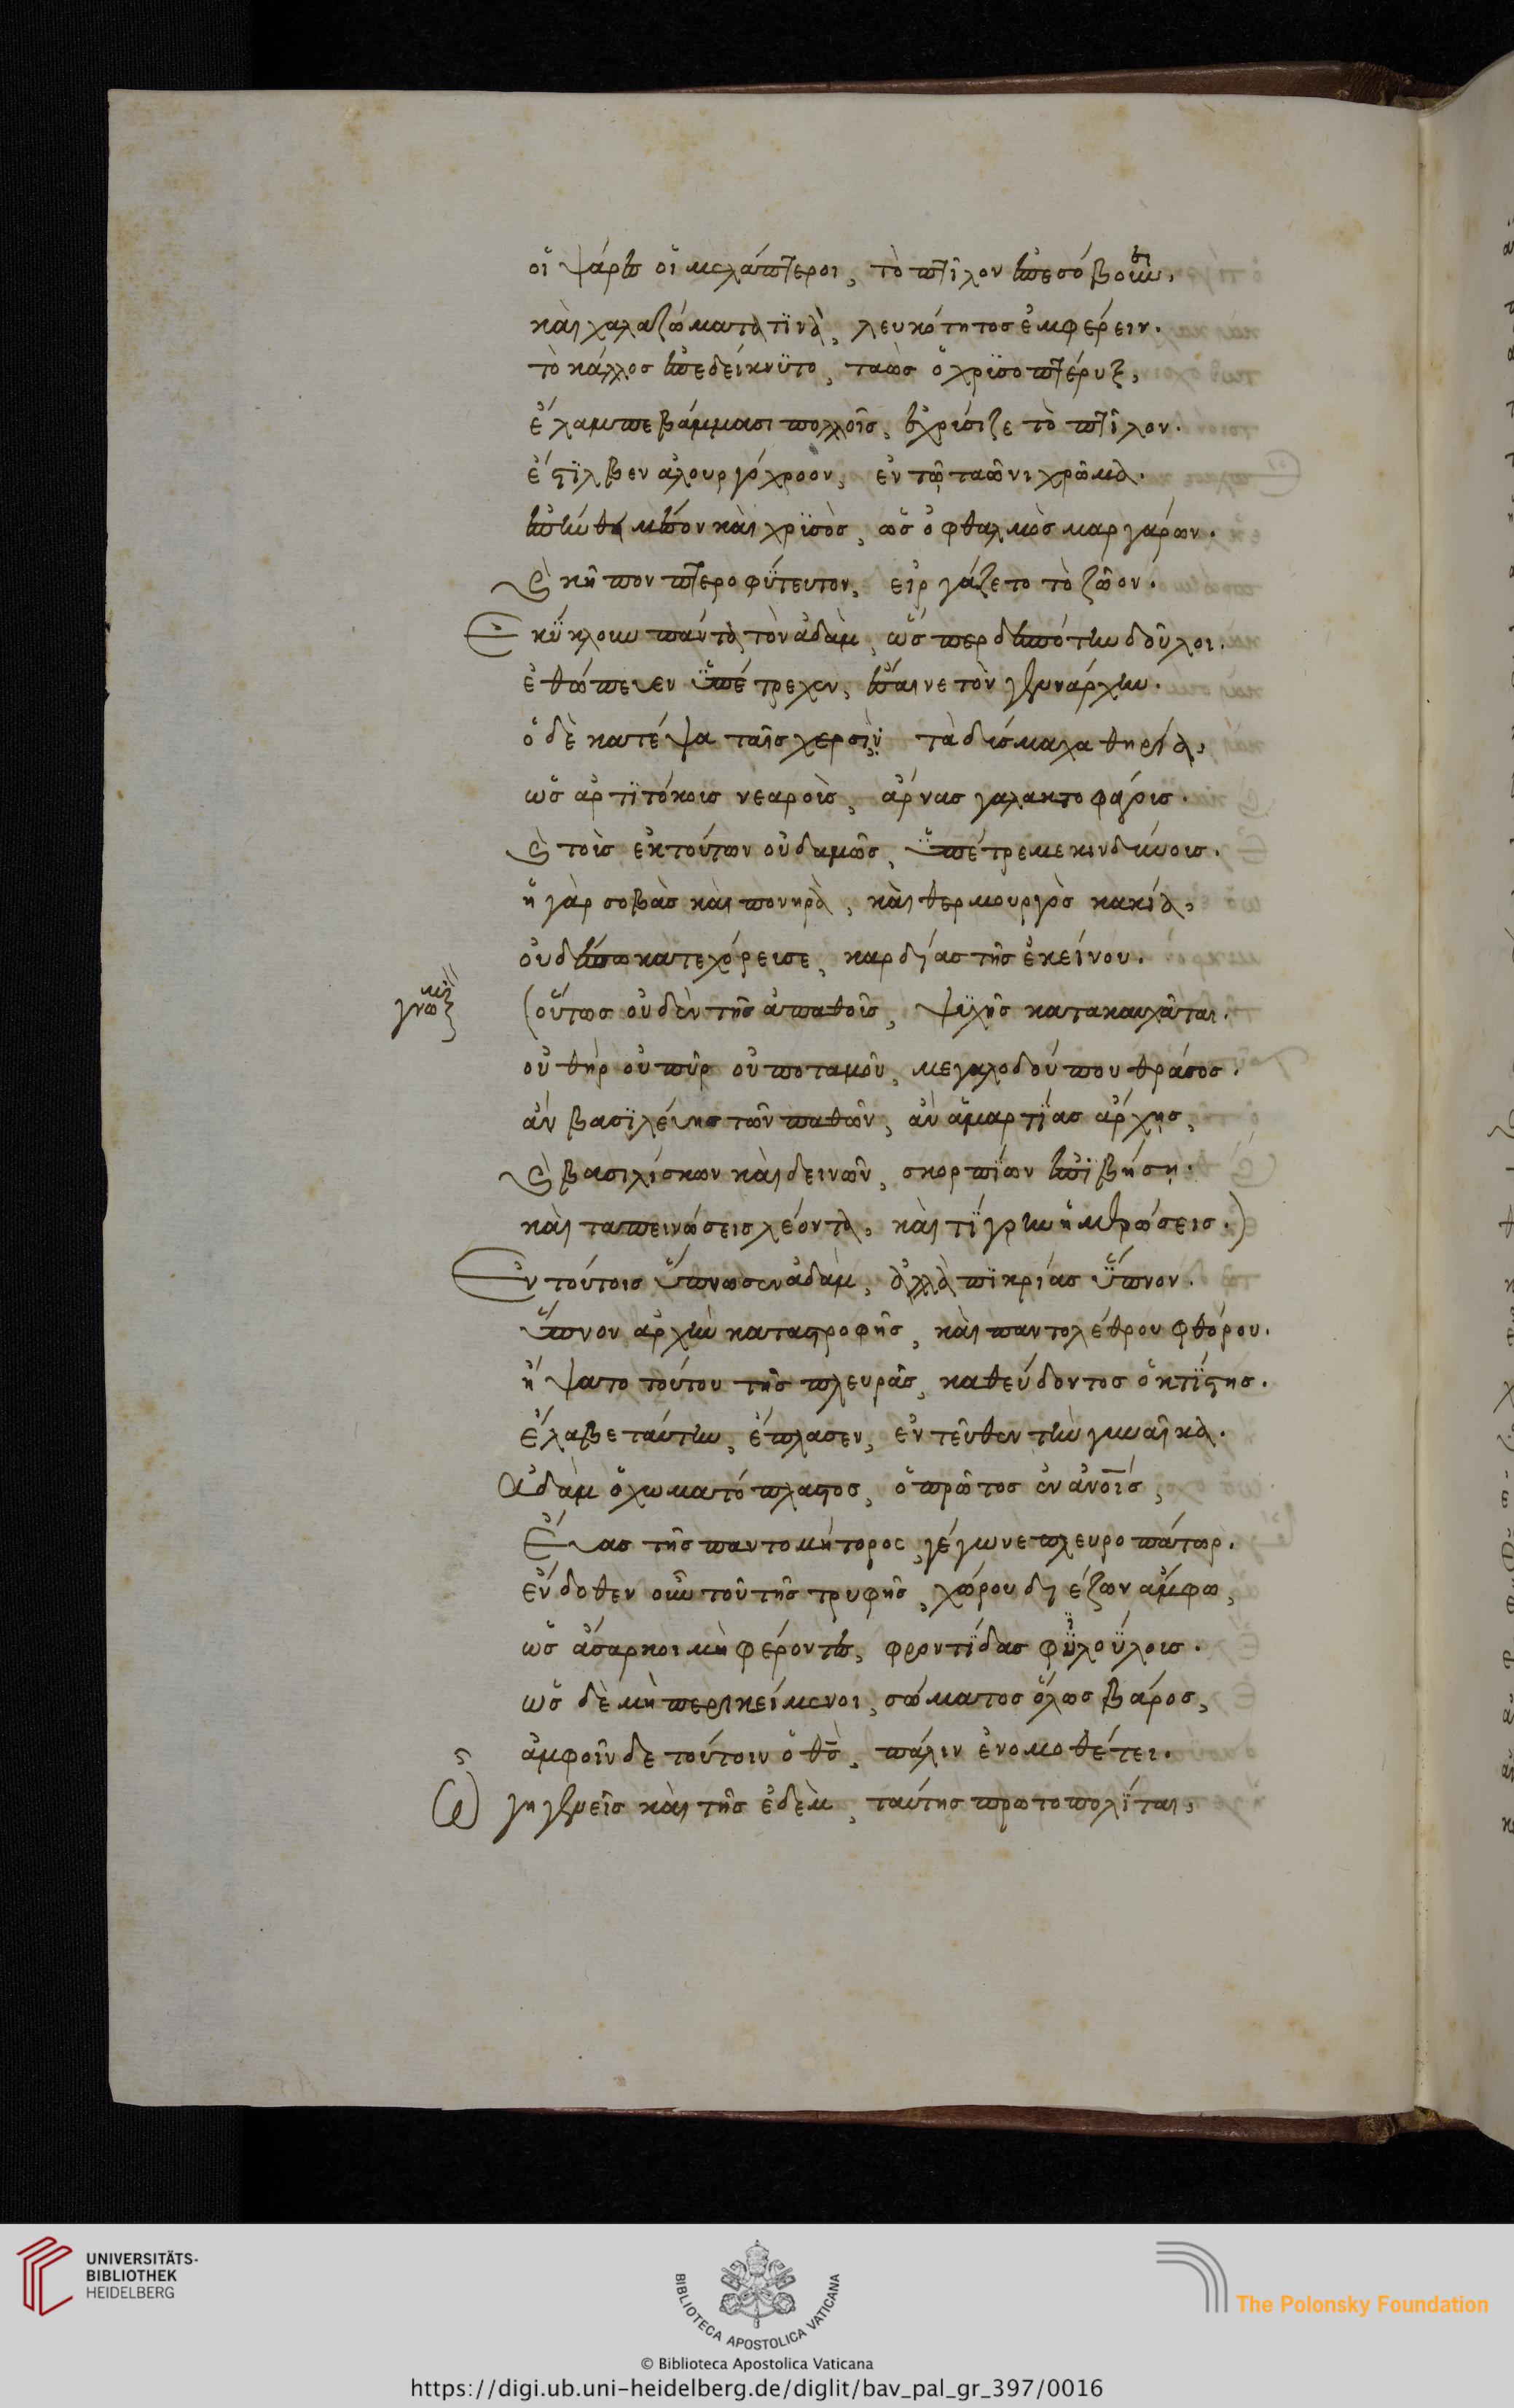 οἱ ψάρες οἱ μελάμπτεροι, τὸ πτίλον ἐπεσόβουν,
καὶ χαλαζώματα τινὰ, λευκότητος ἐμφέρειν.
τὸ κάλλος ἐπεδείκνυτο, ταὼς ὁ χρυσοπτέρυξ,
ἔλαμπε βάμμασι πολλοῖς, ἐχρύσιζε τὸ πτίλον.
ἔστιλβεν ἁλουργόχροον, ἐν τῷ ταῶνι χρῶμα.
καὶ χρυσὸς, ὡς ὀφθαλμὸς μαργάρων.
καὶ κῆπον πτεροφύτευτον, εἰργάζετο τὸ ζῶον.
Ἐκύκλουν πάντα τὸν ἀδὰμ, ὥσπερ δεσπότην δοῦλοι.
ἐθώπευεν ὑπέτρεχεν, ἔσαινε τὸν γεηνάρχην.
ὁ δὲ κατέψα ταῖς χερσὶν τὰ δύσμαχα θηρία,
ὡς ἀρτιτόκοις νεαροῖς, ἄρνας γαλακτοφάγοις.
καὶ τοῖς ἐκ τούτων οὐδαμῶς, ὑπέτρεμε κινδύνοις.
ἡ γὰρ σοβὰς καὶ πονηρὰ, καὶ θερμουργὸς κακία,
οὐδέπω κατεχόρευσε, καρδίας τῆς ἐκείνου.
γνωμι (οὕτως οὐδὲν τῆς ἀπαθοῦς, ψυχῆς κατακαυχᾶται.
οὐ θὴρ οὐ πῦρ οὐ ποταμοῦ, μεγαλοδούπου θράσος.
ἂν βασιλεύῃς τῶν παθῶν, ἂν ἁμαρτίας ἄρχῃς,
καὶ βασιλίσκων καὶ δεινῶν, σκορπίων ἐπιβήσῃ.
καὶ ταπεινώσεις λέοντα, καὶ τίγριν ἡμερώσεις.)
Ἐν τούτοις ὕπνωσεν ἀδὰμ, ἀλλὰ πικρίας ὕπνον.
ὕπνον ἀρχὴν καταστροφῆς, καὶ παντολέθρου φθόρου.
ἥψατο τούτου τῆς πλευρᾶς, καθεύδοντος ὁ κτίστης.
ἔλαβε ταύτην, ἔπλασεν, ἐντεῦθεν τὴν γυναῖκα.
Ἀδὰμ ὁ χωματόπλαστος, ὁ πρῶτος ἐν ἀνοις,
Εὔας τῆς παντομήτορος, γέγονε πλευροπάτωρ.
ἔνδοθεν οὖν τοῦ τῆς τρυφῆς, χώρου διέζων ἄμφω,
ὡς ἄσαρκοι μὴ φέροντες, φροντίδας φιλοΰλοις.
ὡς δὲ μὴ περικείμενοι, σώματος ὅλως βάρος,
ἀμφοῖν δὲ τούτοιν ὁ θς, πάλιν ἐνομοθέτει.
ὦ γηγενεῖς καὶ τῆς ἐδὲμ, ταύτης πρωτοπολίται,
UNIVERSITÄTS-
BIBLIOTHEK
HEIDELBERG
BIBLIOTECA APOSTOLICA VATICANA
The Polonsky Foundation
© Biblioteca Apostolica Vaticana
https://digi.ub.uni-heidelberg.de/diglit/bav_pal_gr_397/0016